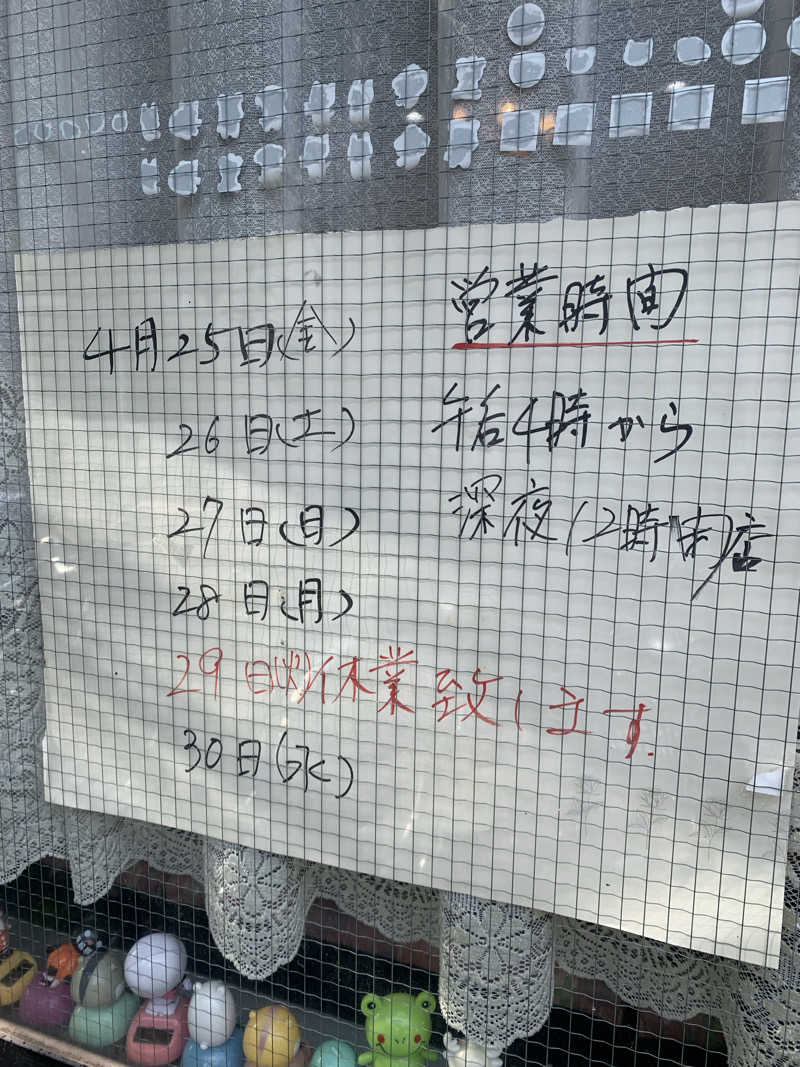 4月25日(金)
26日(土)
27日(日)
28日(月)
29日(火)休業致します.
30日(水)
営業時間
午后4時から
深夜12時閉店